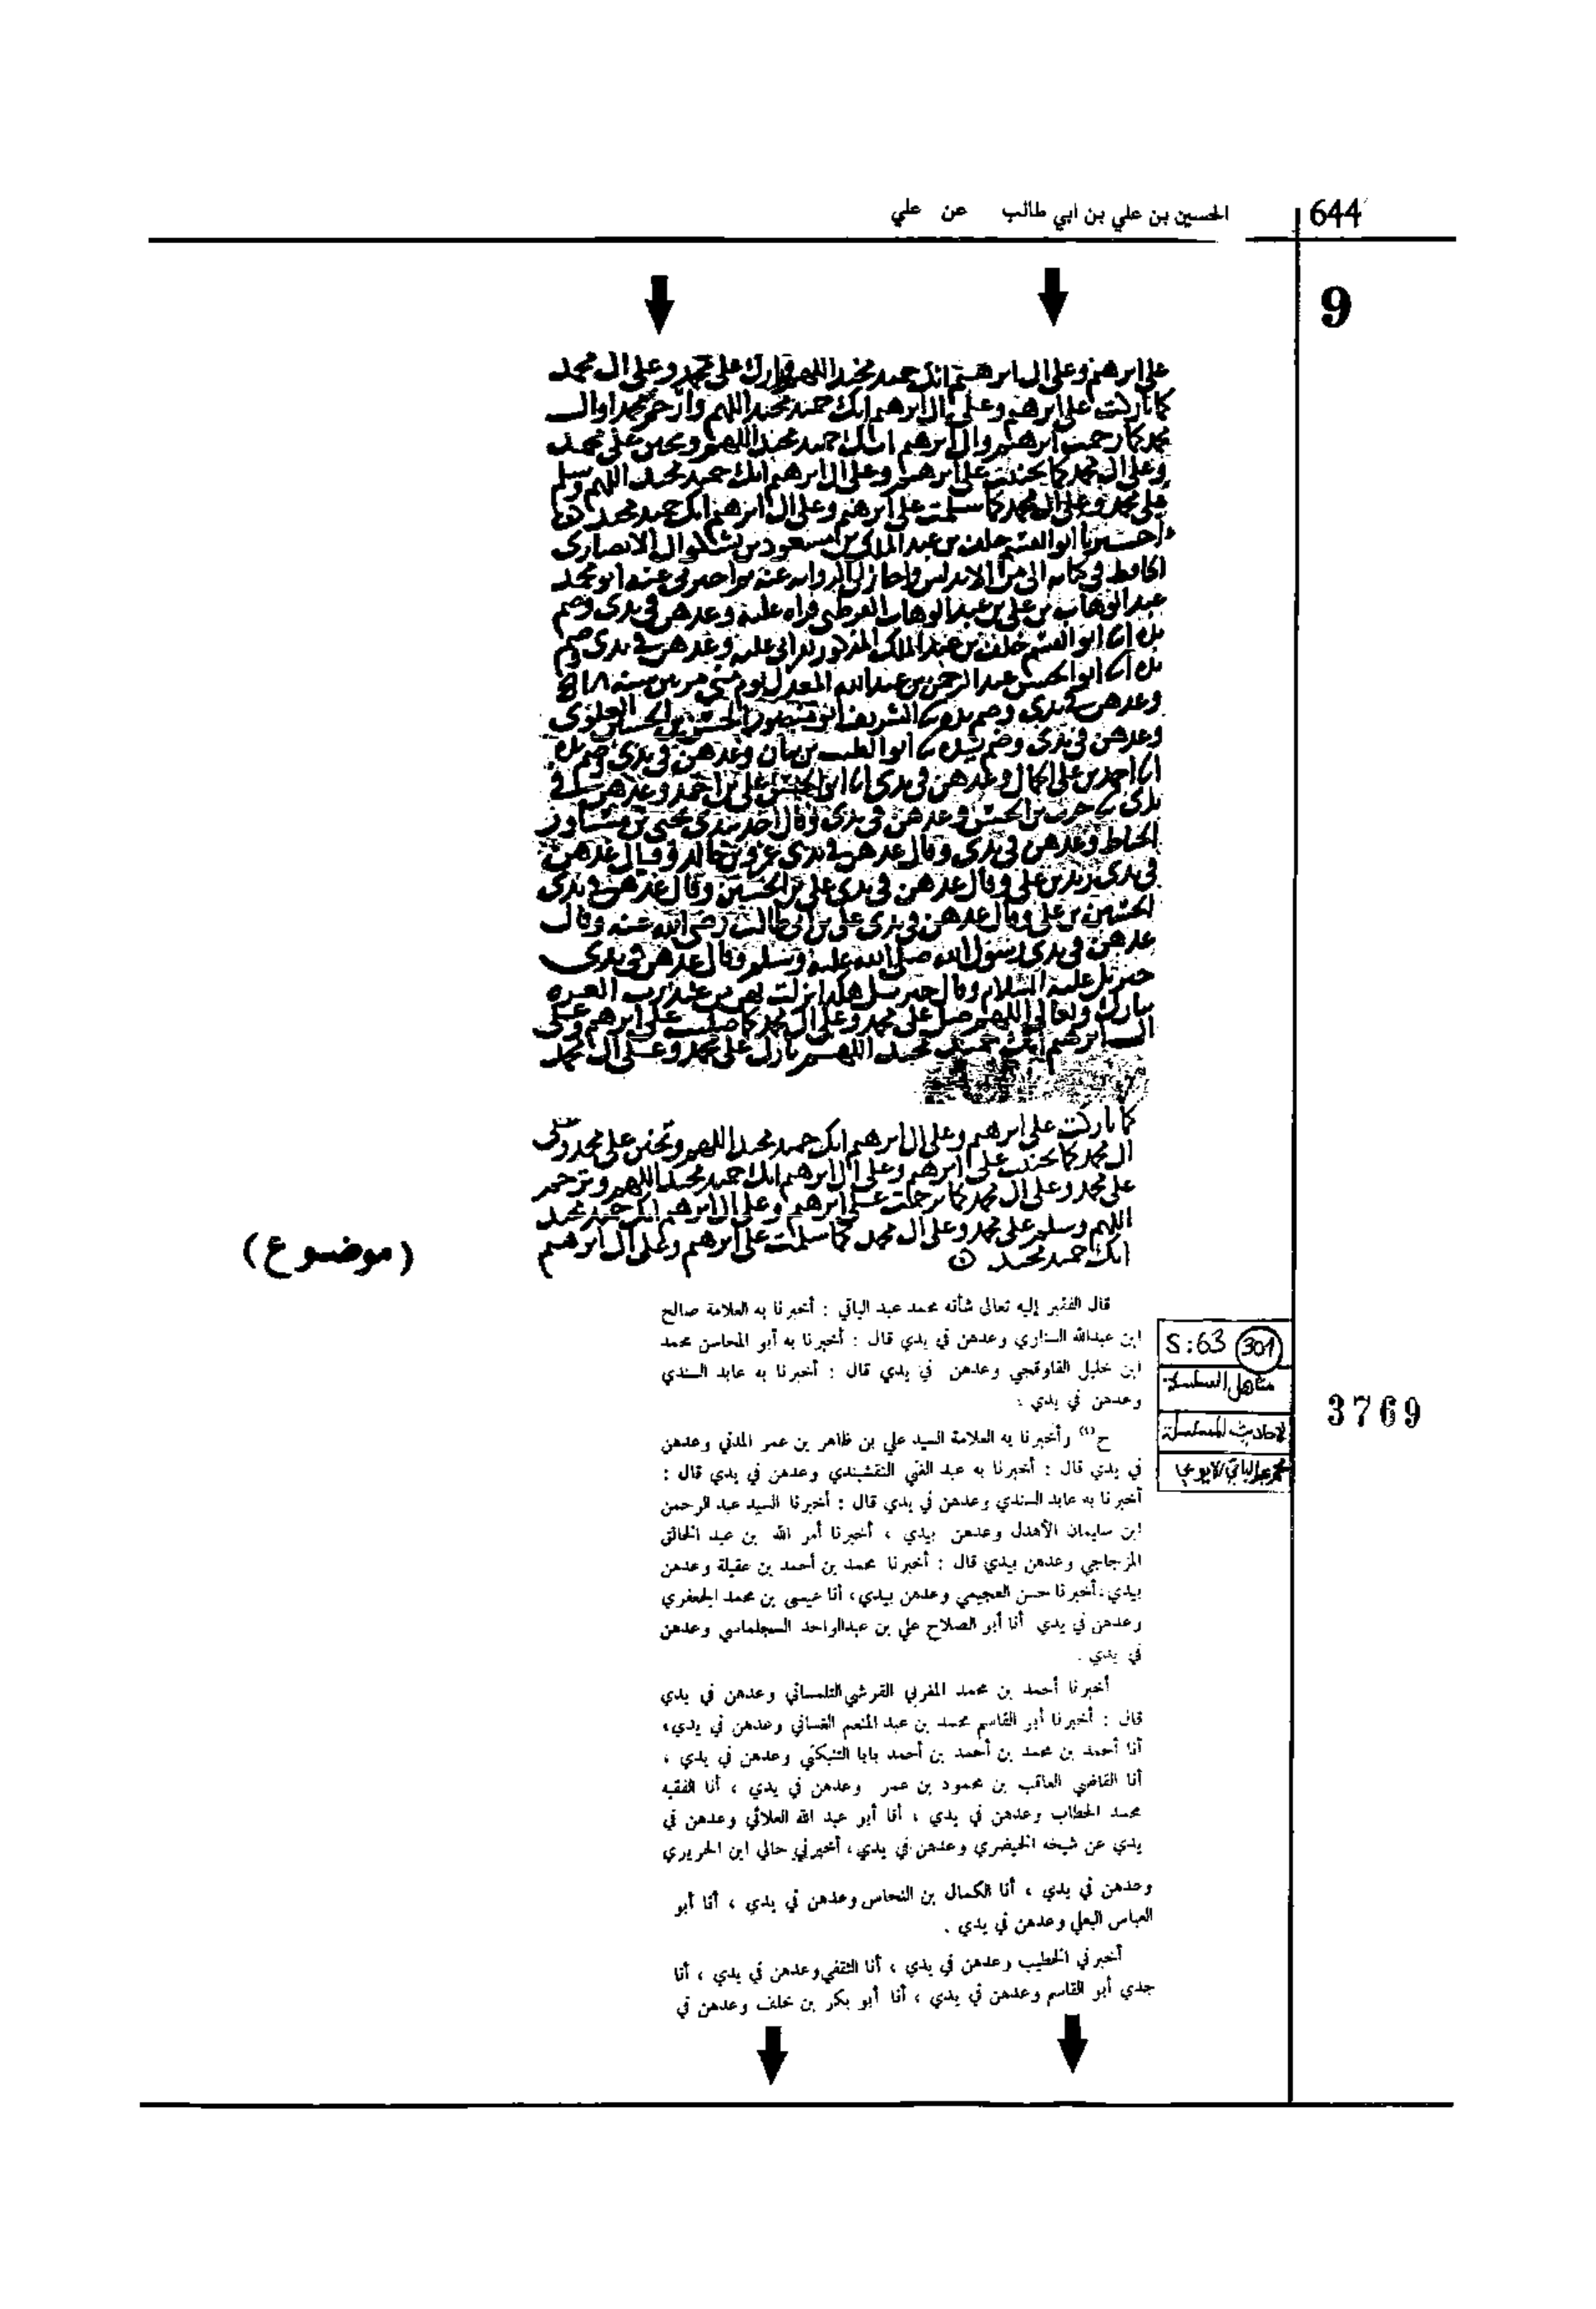 644
الحسين بن علي بن ابي طالب عن علي
9
على ابرهيم وعلى ال ابرهيم انك حميد مجيد اللهم وبارك على محمد وعلى ال محمد
كما باركت على ابرهيم وعلى ال ابرهيم انك حميد مجيد اللهم وارحم محمدا وال
محمد كما رحمت ابرهيم وال ابرهيم انك حميد مجيد اللهم وتحنن على محمد
وعلى ال محمد كما تحننت على ابرهيم وعلى ال ابرهيم انك حميد مجيد اللهم وسلم
على محمد وعلى ال محمد كما سلمت على ابرهيم وعلى ال ابرهيم انك حميد مجيد
اخبرنا ابو القسم خلف بن عبد الملك بن مسعود بن بشكوال الانصارى
الحافظ فى كتابه الى من الاندلس واجاز لى الرواية عنه واخبرنى عنه ابو محمد
عبد الوهاب بن على بن عبد الوهاب القرطبى قراه عليه وعدهن فى يدى وضم
يده انا ابو القسم خلف بن عبد الملك المذكور بقراتى عليه وعدهن فى يدى وضم
يده انا ابو الحسن عبد الرحمن بن عبد الله المعدل يوم
وعدهن فى يدى وضم يده الشريف ابو منصور
وعدهن فى يدى وضم يده ابو الطيب بن بيان وعدهن فى يدى وضم يده
انا احمد بن على الكمال وعدهن فى يدى انا ابو الحسن على بن احمد وعدهن فى
يدى حرب بن الحسن وعدهن فى يدى وقال اخذ بيدى يحيى بن مساور
الحناط وعدهن فى يدى وقال عدهن فى يدى عمرو بن خالد وقال عدهن
فى يدى زيد بن على وقال عدهن فى يدى على بن الحسين وقال عدهن فى يدى
الحسين بن على وقال عدهن فى يدى على بن ابى طالب رضى الله عنه وقال
عدهن فى يدى رسول الله صلى الله عليه وسلم وقال عدهن فى يدى
جبريل عليه السلام وقال جبريل هكذا نزلت بهن من عند رب العزه
تبارك وتعالى اللهم صل على محمد وعلى ال محمد كما صليت على ابرهيم وعلى
ال ابرهيم انك حميد مجيد اللهم بارك على محمد وعلى ال محمد
كما باركت على ابرهيم وعلى ال ابرهيم انك حميد مجيد اللهم وتحنن على محمد وعلى
ال محمد كما تحننت على ابرهيم وعلى ال ابرهيم انك حميد مجيد اللهم وترحم
على محمد وعلى ال محمد كما ترحمت على ابرهيم وعلى ال ابرهيم انك حميد مجيد
اللهم وسلم على محمد وعلى ال محمد كما سلمت على ابرهيم وعلى ال ابرهيم
انك حميد مجيد
(موضوع)
قال الفقير إليه تعالى شأنه محمد عبد الباقي : أخبرنا به العلامة صالح
ابن عبدالله السناري وعدهن في يدي قال : أخبرنا به أبو المحاسن محمد
ابن خليل القاوقجي وعدهن في يدي قال : أخبرنا به عابد السندي
وعدهن في يدي :
ح (١) وأخبرنا به العلامة السيد علي بن ظاهر بن عمر المدني وعدهن
في يدي قال : أخبرنا به عبد الغني النقشبندي وعدهن في يدي قال :
أخبرنا به عابد السندي وعدهن في يدي قال : أخبرنا السيد عبد الرحمن
ابن سليمان الأهدل وعدهن بيدي ، أخبرنا أمر الله بن عبد الخالق
المزجاجي وعدهن بيدي قال : أخبرنا محمد بن أحمد بن عقيلة وعدهن
بيدي، أخبرنا حسن العجيمي وعدهن بيدي، أنا عيسى بن محمد الجعفري
وعدهن في يدي أنا أبو الصلاح علي بن عبدالواحد السجلماسي وعدهن
في يدي .
أخبرنا أحمد بن محمد المغربي القرشي التلمساني وعدهن في يدي
قال : أخبرنا أبو القاسم محمد بن عبد المنعم الغساني وعدهن في يدي،
أنا أحمد بن محمد بن أحمد بن أحمد بابا التنبكتي وعدهن في يدي ،
أنا القاضي العاقب بن محمود بن عمر وعدهن في يدي ، أنا الفقيه
محمد الحطاب وعدهن في يدي ، أنا أبو عبد الله العلائي وعدهن في
يدي عن شيخه الخيضري وعدهن في يدي، أخبرني خالي ابن الحريري
وعدهن في يدي ، أنا الكمال بن النحاس وعدهن في يدي ، أنا أبو
العباس البعلي وعدهن في يدي .
أخبرني الخطيب وعدهن في يدي ، أنا الثقفي وعدهن في يدي ، أنا
جدي أبو القاسم وعدهن في يدي ، أنا أبو بكر بن خلف وعدهن في
S:63 301
مناهل السلسلة
الاحاديث المسلسلة
محمد عبد الباقي الايوبي
3769